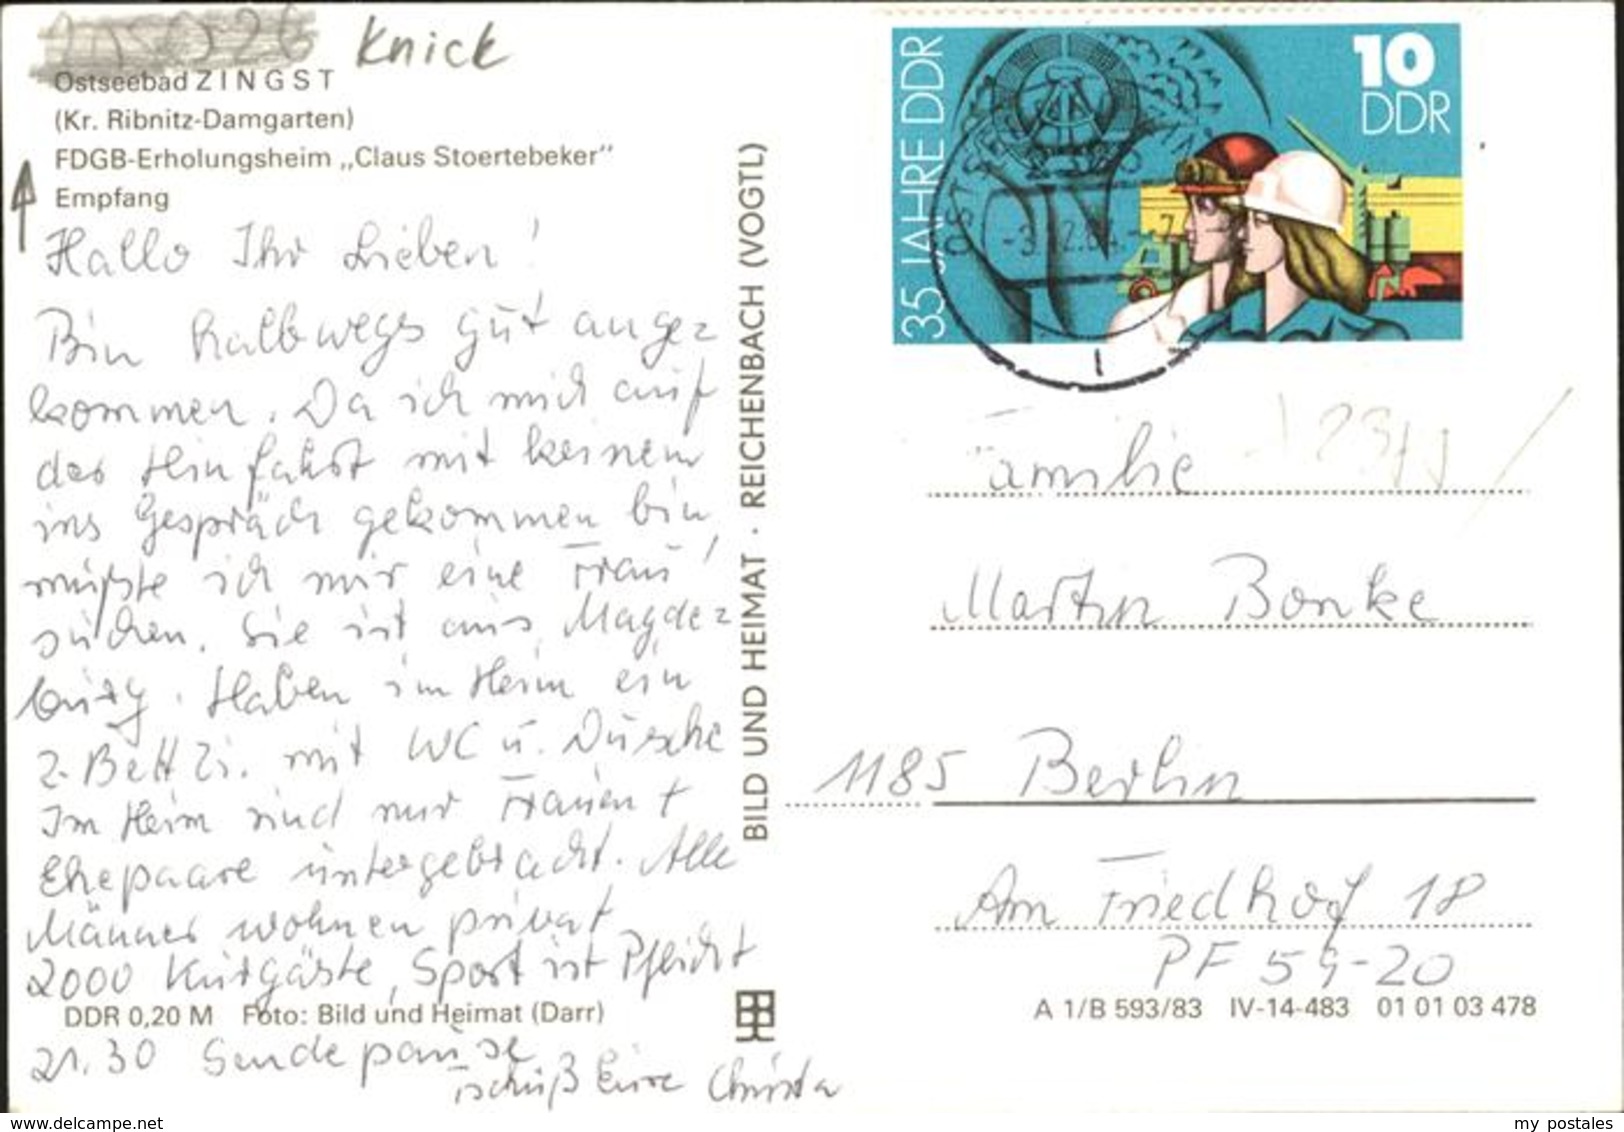 Knick
Ostseebad ZINGST
(Kr. Ribnitz-Damgarten)
FDGB-Erholungsheim „Claus Stoertebeker"
Empfang
Hallo Ihr Lieben!
Bin halbwegs gut ange=
kommen. Da ich mich auf
der Hinfahrt mit keinem
ins Gespräch gekommen bin,
mußte ich mir eine Frau
suchen. Sie ist aus Magde=
burg. Haben im Heim ein
2-Bett Zi. mit WC u. Dusche
Im Heim sind nur Frauen +
Ehepaare untergebracht. Alle
Männer wohnen privat
2000 Kurgäste, Sport ist Pflicht
DDR 0,20 M Foto: Bild und Heimat (Darr)
21.30 Sendepause
Tschüß Eure Christa
BILD UND HEIMAT · REICHENBACH (VOGTL)
35 JAHRE DDR
10
DDR
Familie
Martin Bonke
1185 Berlin
Am Friedhof 18
PF 59-20
A 1/B 593/83 IV-14-483 01 01 03 478
www.delcampe.net
my_postales